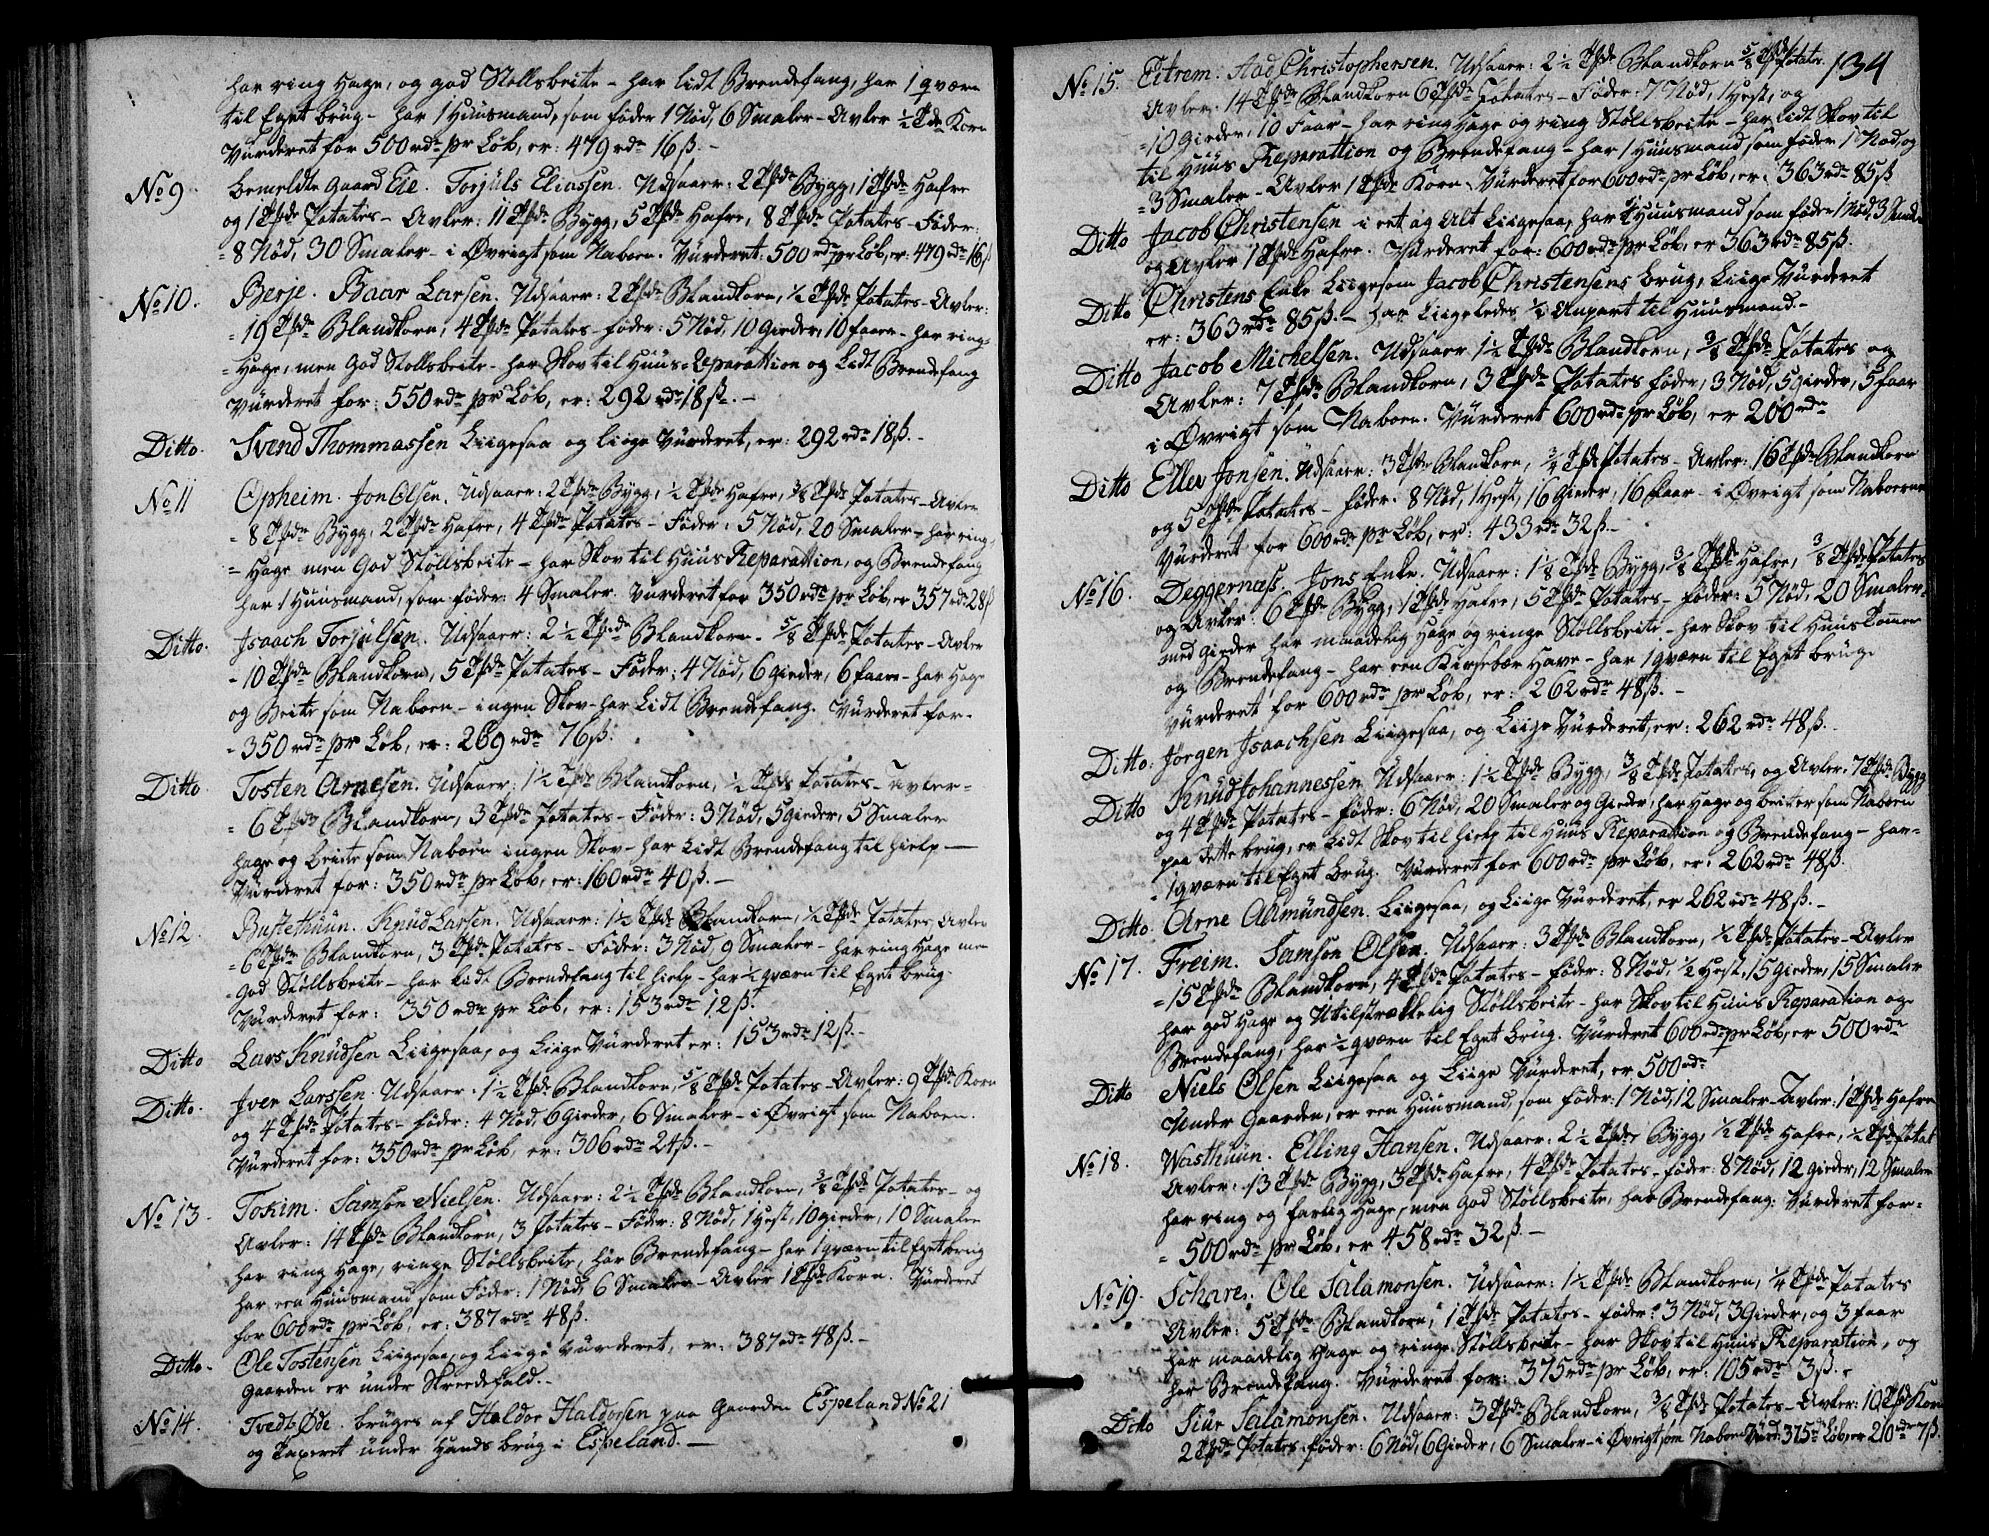 har ring Hage, og god Støllsbeite - har lidt Brendefang, har 1 qværn
til Eget brug - har 1 Huusmand, som føder 1 Nød, 6 Smaler - Avler ½ Tde Korn
Vurderet for 500 rdr pr Løb, er: 479 rdr 16 ß. -
No 9 bemeldte gaard Eie. Torjuls Eliassen. Udsaaer: 2 Tde Bygg, 1 Tde Hafre
og 1 Tde Potates - Avler: 11 Tde Bygg, 5 Tde Hafre, 8 Tde Potates - Føder:
= 8 Nød, 30 Smaler - i Øvrigt som Naboen. Vurderet: 500 rdr pr Løb, er: 479 rdr 16 ß
No 10. Berje. Baar Larsen. Udsaaer: 2 Tde Blandkorn, ½ Tde Potates - Avler:
= 10 Tde Blandkorn, 4 Tde Potates - føder: 5 Nød, 10 Gieder, 10 faare - har ring=
= Hage, men God Stollsbeite - har Skov til Huus Reparattion og Lidt Brendefang
Vurderet for: 550 rdr pr Løb, er: 292 rdr 18 ß. -
Ditto. Svend Thommassen Liigesaa og liige Vurderet, er: 292 rdr 18 ß. -
No 11 Opheim. Jon Olsen. Udsaaer: 2 Tde Bygg, ½ Tde Hafre, ⅜ Tde Potates - Avler
= 8 Tde Bygg, 2 Tde Hafre, 4 Tde Potates - Føder: 5 Nød, 20 Smaler - har ring=
= Hage men God Støllsbeite - har Skov til Huus Reparattion, og Brendefang
har 1 Huusmand, som føder: 4 Smaler. Vurderet for 350 rdr pr Løb, er 357 rdr 28 ß
Ditto. Isaach Torjulsen. Udsaaer: 2 ½ Tde Blandkorn - ⅝ Tde Potates - Avler
- 10 Tde Blandkorn, 5 Tde Potates - Føder: 4 Nød, 6 gieder, 6 faare - har Hage
og Beite som Naboen - ingen Skov - har Lidt Brendefang. Vurderet for -
- 350 rdr pr Løb, er: 269 rdr 76 ß.
Ditto Tosten Arnesen. Udsaaer: 1 ½ Tde Blandkorn, ½ Tde Potates - Avler -
= 6 Tde Blandkorn, 3 Tde Potates - Føder: 3 Nød, 5 gieder, 5 Smaler
hage og beite som Naboen ingen Skov - har Lidt Brendefang til hielp -
Vurderet for: 350 rdr pr Løb, er: 160 rdr 40 ß. -
No 12. Bustethuun. Knud Larsen. Udsaaer: 1 ½ Tde Blandkorn, ½ Tde Potates, Avler
= 6 Tde Blandkorn, 3 Tde Potates - Føder: 3 Nød 9 Smaler - har ring Hage men
- God Støllsbeite - har Lidt Brendefang til hielp - har ½ qværn til Eget brug.
Vurderet for: 350 rdr pr Løb, er: 153 rdr 12 ß.
Ditto Lars Knudsen Liigesaa, og Liige Vurderet er: 153 rdr 12 ß. -
Ditto. Iver Larssen. Udsaaer: 1 ½ Tde Blandkorn, ⅝ Tde Potates - Avler: 9 Tde Korn
og 4 Tde Potates - føder: 4 Nød, 6 Gieder, 6 Smaler - i Øvrigt som Naboen.
Vurderet for: 350 rdr pr Løb, er: 306 rdr 24 ß. -
No 13. Tokim. Samson Nielsen. Udsaaer: 2 ½ Tde Blandkorn, ⅜ Tde Potates - og
Avler: 14 Tde Blandkorn, 3 Potates - Føder: 8 Nød, 1 Hest, 10 gieder, 10 Smaler
har ring Hage, ringe Støllsbeite, har Brendefang - har 1 qværn til Eget brug
har een Huusmand som Føder: 1 Nød, 6 Smaler - Avler 1 Tde Korn. Vurderet
for 600 rdr pr Løb, er: 387 rdr 48 ß.
Ditto. Ole Tostensen Liigesaa, og Liige Vurderet, er: 387 rdr 48 ß. -
Gaarden er under Skreedefald. -
No 14. Tvedt Øde. bruges af Haldor Haldorsen paa Gaarden Espeland No 21
og Taxeret under Hands brug i Espeland. -
134
No 15. Eitrem. Aad Christophersen. Udsaaer: 2 ½ Tde Blandkorn ⅝ Tde Potates.
Avler: 14 Tde Blandkorn 6 Tde Potates - Føder: 7 Nød, 1 Hest, og
= 10 Gieder, 10 Faar - har ring Hage og ring Støllsbeite - har Lidt Skov til
til Huus Reparattion og Brendefang - har 1 Huusmand som føder 1 Nød, og
= 3 Smaler - Avler 1 Tde Korn. Vurderet for 600 rdr pr Løb, er: 363 rdr 85 ß
Ditto Jacob Christensen i eet og Alt Liigesaa, har 1 Huusmand som føder 1 Nød, 3 Smaler
og Avler 1 Tde Hafre. Vurderet for: 600 rdr pr Løb, er 363 rdr 85 ß.
Ditto Christens Enke Liigesom Jacob Christensens brug, Liige Vurderet
er: 363 rdr 85 ß. - har Liigeledes ½ Anpart til Huusmand. -
Ditto Jacob Michelsen. Udsaaer 1 ½ Tde Blandkorn, ⅜ Tde Potates og
Avler: 7 Tde Blandkorn, 3 Tde Potates føder, 3 Nød, 5 gieder, 5 faar
i Øvrigt som Naboen. Vurderet 600 rdr pr Løb, er 200 rdr
Ditto Ellev Jonsen. Udsaaer: 3 Tde Blandkorn, ¾ Tde Potates - Avler: 16 Tde Blandkorn
og 5 Tde Potates - føder: 8 Nød, 1 Hest, 16 Gieder, 16 faar - i Øvrigt som Naboerne
Vurderet for 600 rdr pr Løb, er: 433 rdr 32 ß. -
No 16. Deggernæss. Jons Enke. Udsaaer: 1 ⅛ Tde Bygg, ⅜ Tde Hafre, ⅜ Tde Potates
og Avler: 6 Tde Bygg, 1 Tde Hafre, 5 Tde Potates - føder: 5 Nød, 20 Smaler
med gieder har maadelig Hage og ringe Støllsbeite - har Skov til Huus Tømmer
og Brendefang - har een Kirsebær Have - har 1 qværn til Eget brug
Vurderet for 600 rdr pr Løb, er: 262 rdr 48 ß. -
Ditto. Jørgen Isaachsen Liigesaa, og Liige Vurderet, er: 262 rdr 48 ß.
Ditto Knud Johannessen, Udsaaer: 1 ½ Tde Bygg, ⅜ Tde Potates, og Avler: 7 Tde Bygg
og 4 Tde Potates - føder: 6 Nød, 20 Smaler og Gieder, har Hage og beiter som Naboen
paa dette brug, er Lidt Skov til hielp til Huus Reparattion og Brendefang - har -
- 1 qværn til Eget brug. Vurderet for 600 rdr pr Løb, er: 262 rdr 48 ß.
Ditto. Arne Aamundsen. Liigesaa, og Liige Vurderet, er 262 rdr 48 ß. -
No 17. Freim. Samson Olsen. Udsaaer: 3 Tde Blandkorn, ½ Tde Potates - Avler
= 15 Tde Blandkorn, 4 Tde Potates - føder: 8 Nød, ½ Hest, 15 Gieder, 15 Smaler
har god Hage og Utilstrækkelig Støllsbeite - har Skov til Huus Reparation og
Brendefang, har ½ qværn til Eget brug. Vurderet 600 rdr pr Løb, er 500 rdr
Ditto Niels Olsen Liigesaa og Liige Vurderet, er 500 rdr
Under Gaarden, er een Huusmand, som føder: 1 Nød, 12 Smaler - Avler: 1 Tde Hafre
No 18. Wasthuun. Elling Hansen. Udsaaer: 2 ½ Tde Bygg, ½ Tde Hafre, ½ Tde Potat
Avler: 13 Tde Bygg, 3 Tde Hafre, 4 Tde Potates - føder: 8 Nød, 12 Gieder, 12 Smaler
har ring og farlig Hage, men God Støllsbeite, har Brendefang: Vurderet for -
= 500 rdr pr Løb, er 458 rdr 32 ß. -
No 19. Schare. Ole Salamonsen. Udsaaer: 1 ½ Tde Blandkorn, ¼ Tde Potates
Avler: 5 Tde Blandkorn, 1 Tde Potates - føder: 3 Nød, 3 Gieder, og 3 faar
har maadelig Hage og ringe Støllsbeite - har Skov til Huus Reparation, og
har Brendefang. Vurderet for: 375 rdr pr Løb, er: 105 rdr 3 ß. -
Ditto Siur Salamonsen. Udsaaer: 3 Tde Blandkorn, ⅜ Tde Potates - Avler: 10 Tde Korn
2 Tde Potates - føder: 6 Nød, 6 Gieder, 6 Smaler - i Øvrigt som Naboen Vurd: 375 rdr Løb, er 210 rdr 7 ß.